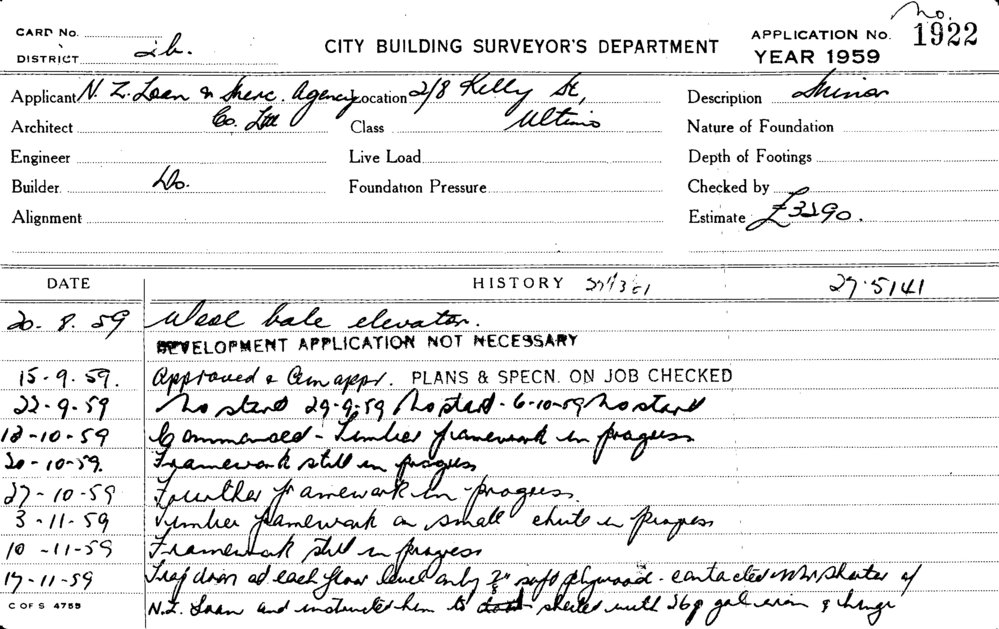 CARD No.
DISTRICT 2b.
CITY BUILDING SURVEYOR'S DEPARTMENT
APPLICATION No. no. 1922
YEAR 1959
Applicant N. Z. Loan & Merc. Agency Co. Ltd
Location 2/8 Kelly St, Ultimo
Description Minor
Architect
Class
Nature of Foundation
Engineer
Live Load
Depth of Footings
Builder Do.
Foundation Pressure
Checked by
Alignment
Estimate £3290.
DATE HISTORY 27·5141
20. 8. 59 Wool bale elevator.
DEVELOPMENT APPLICATION NOT NECESSARY
15-9.59. Approved & Com appr. PLANS & SPECN. ON JOB CHECKED
22-9.59 No start 29-9.59 No start - 6-10-59 No start
13-10-59 Commenced - Timber framework in progress
20-10-59. Framework still in progress
27-10-59 Further framework in progress.
3-11-59 Timber framework on small chute in progress
10-11-59 Framework still in progress
17-11-59 Trap doors at each floor level only 3/8" soft plywood - contacted Mr of
C OF S 4755
N.Z. Loan and instructed him to sheeted with 26g gal iron & hinge